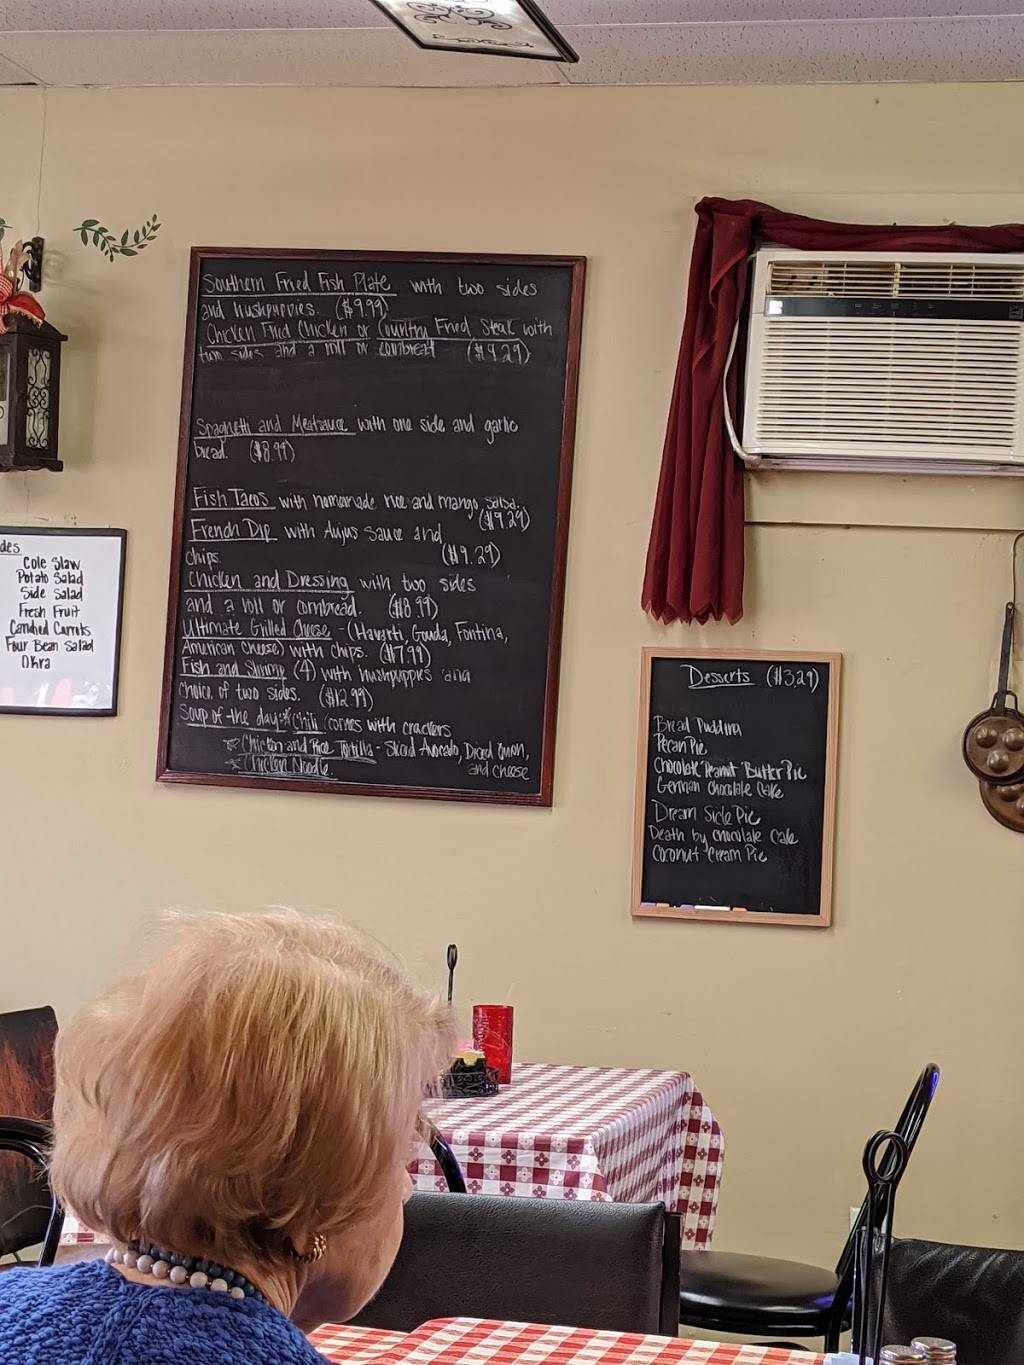 Southern Fried Fish Plate with two sides
and hushpuppies. ($9.99)
Chicken Fried Chicken or Country Fried Steak with
two sides and a roll or cornbread ($9.29)
Spaghetti and Meatsauce with one side and garlic
bread. ($8.99)
Fish Tacos with homemade rice and mango salsa.
($9.29)
French Dip with Aujus Sauce and
chips. ($9.29)
Chicken and Dressing with two sides
and a roll or cornbread. ($8.99)
Ultimate Grilled Cheese - (Havarti, Gouda, Fontina,
American cheese) with chips. ($7.99)
Fish and Shrimp (4) with hushpuppies and
choice of two sides. ($12.99)
Soup of the day: * Chili comes with crackers
* Chicken and Rice Tortilla - Sliced Avocado, Diced Onion,
and cheese
* Chicken Noodle.
des
Cole Slaw
Potato Salad
Side Salad
Fresh Fruit
Candied Carrots
Four Bean Salad
Okra
Desserts ($3.29)
Bread Pudding
Pecan Pie
Chocolate Peanut Butter Pie
German Chocolate Cake
Dream Sicle Pie
Death by Chocolate Cake
Coconut Cream Pie